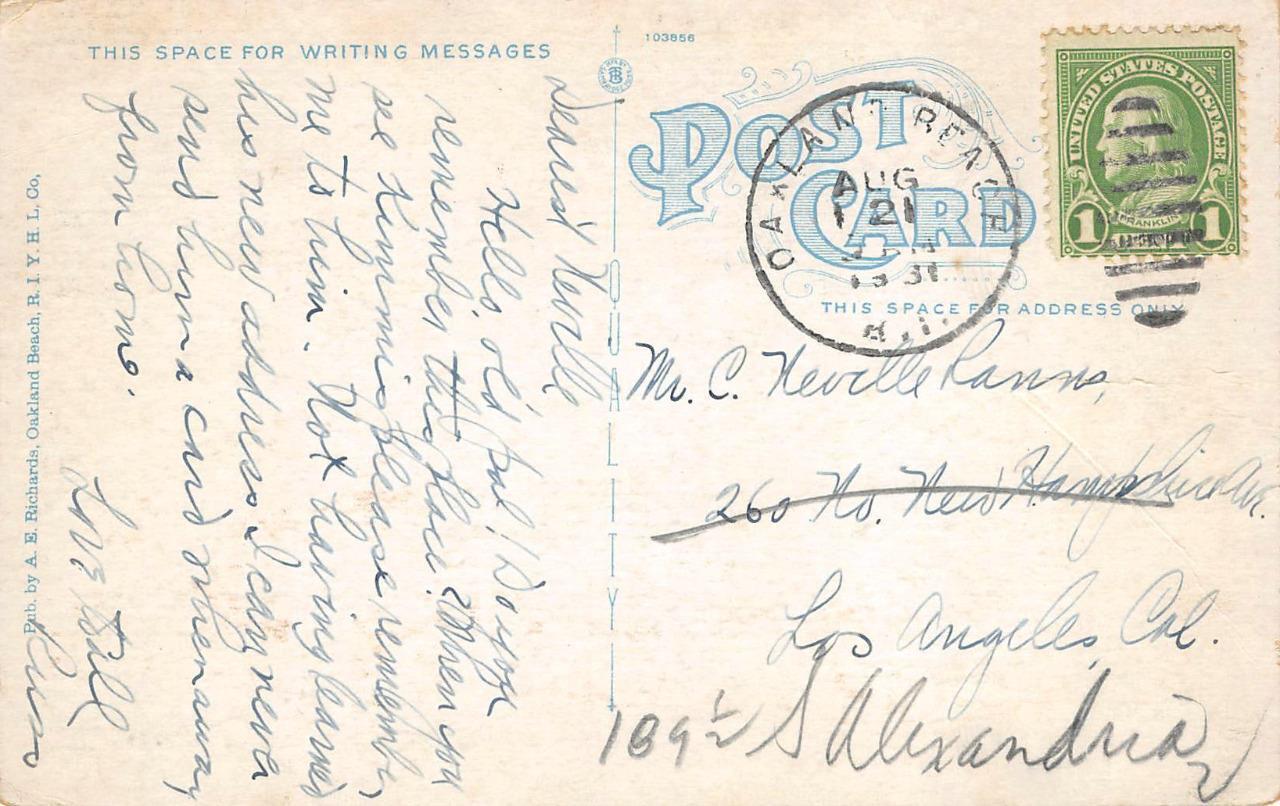 THIS SPACE FOR WRITING MESSAGES
Dear'd Neville
Hello, old pal! Do you
remember this place? When you
see Kinnis please remember
me to him. Not having learned
his new address I can never
send him a card when away
from home.
Love to all
Pub. by A. E. Richards, Oakland Beach, R. I. Y. H. L. Co.
103856
POST CARD
OAKLAND BEACH
AUG
21
1931
R.I.
UNITED STATES POSTAGE
FRANKLIN
1 1
THIS SPACE FOR ADDRESS ONLY
QUALITY
Mr. C. Neville
260 No. New Hampshire Av.
Los Angeles, Cal.
109½ S Alexandria